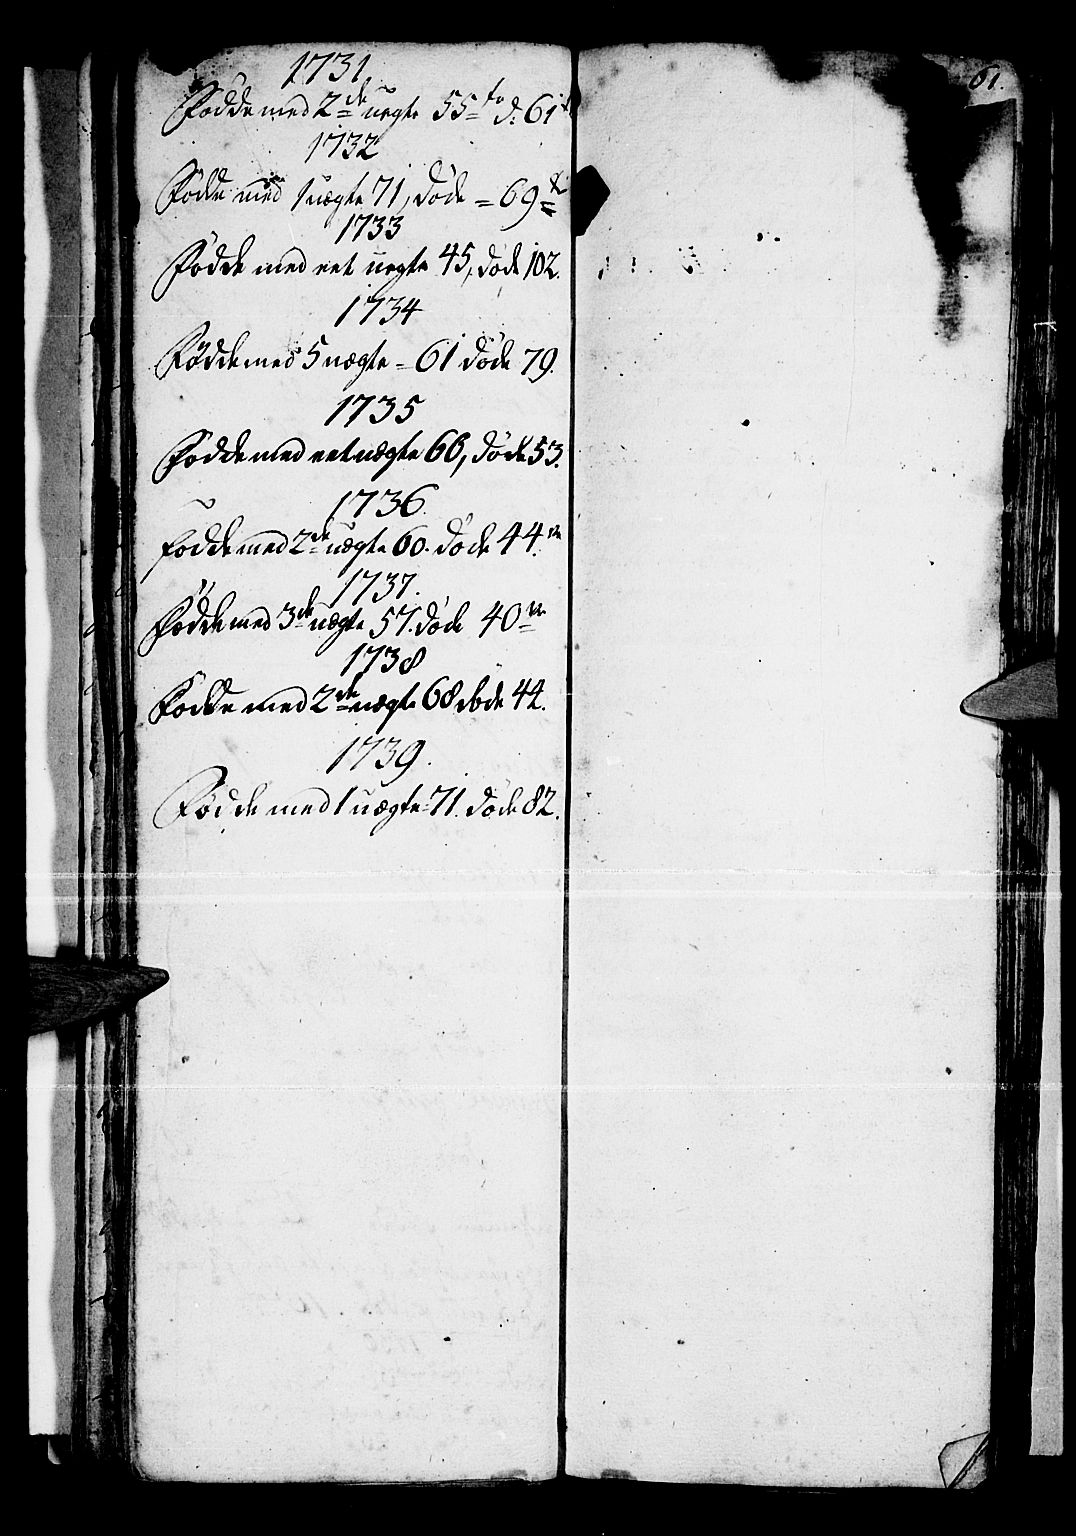 1731
Fødde med 2de uægte 55 to d: 61
1732
Fødde med 1 uægte 71, døde = 69
1733
Fødde med eet uegte 45, døde 102.
1734
Fødde med 5 uægte = 61 døde 79.
1735
Fødde med eet uægte 66, døde 53.
1736.
Fødde med 2de uægte 60. døde 44.
1737.
Fødde med 3de uægte 57. døde 40
1738
Fødde med 2de uægte 68 døde 44.
1739.
Fødde med 1 uægte 71. døde 82.
61.